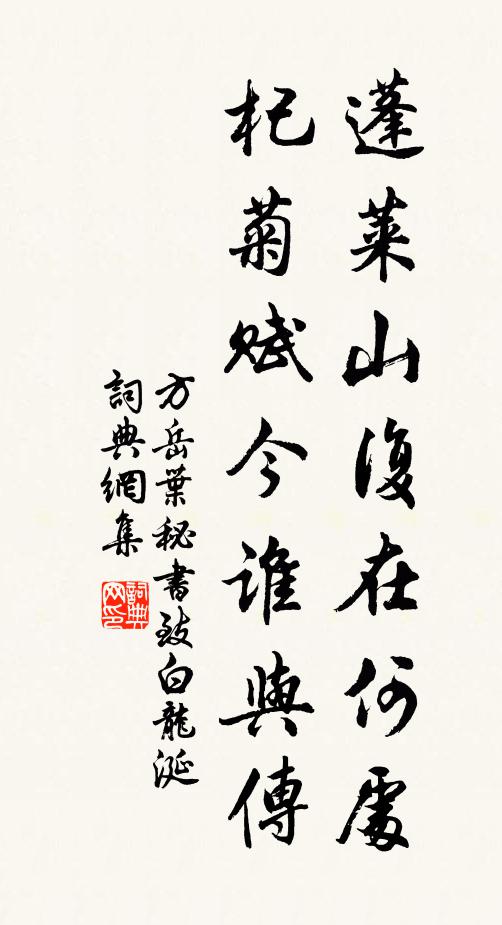 蓬萊山復在何處
杞菊賦今誰與傳
方岳葉秘書致白龍涎
詞典網集
詞典网印